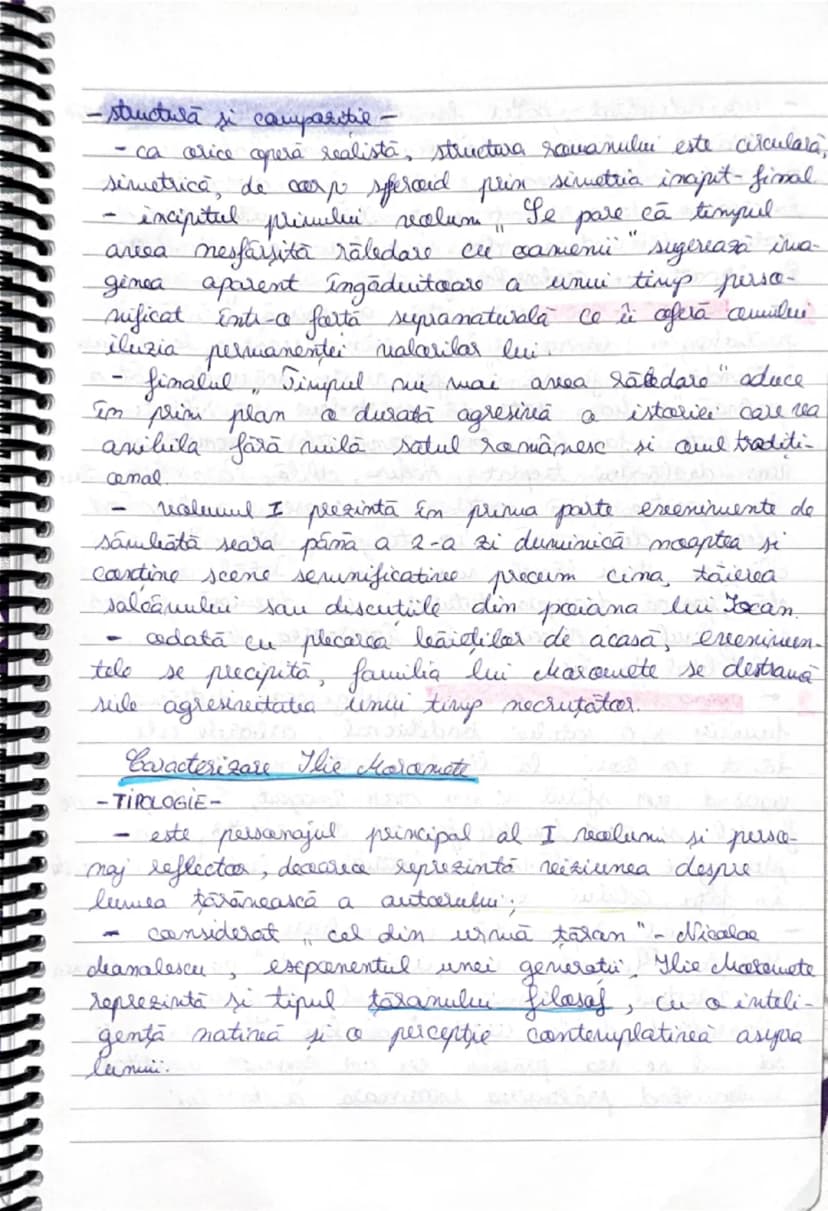 - structură și compoziție -
- ca orice operă realistă, structura romanului este circulară,
simetrică, de corp sferoid prin simetria incipit-final.
- incipitul primului volum „Se pare că timpul
avea nesfârșită răbdare cu oamenii" sugerează ima-
ginea aparent îngăduitoare a unui timp perso-
nificat într-o forță supranaturală ce îi oferă omului
iluzia permanenței valorilor lui.
- finalul „Timpul nu mai avea răbdare" aduce
în prim plan o durată agresivă a istoriei care va
anihila fără milă satul românesc și omul traditi-
onal.
- volumul I prezintă în prima parte evenimente de
sâmbătă seara până a 2-a zi duminică noaptea și
conține scene semnificative precum cina, tăierea
salcâmului sau discuțiile din poiana lui Iocan.
- odată cu plecarea băieților de acasă, evenimen-
tele se precipită, familia lui Moromete se destramă
sub agresivitatea unui timp necruțător.
Caracterizare Ilie Moromete
- TIPOLOGIE -
- este personajul principal al I volum și perso-
naj reflector, deoarece reprezintă viziunea despre
lumea țărănească a autorului;
- considerat „cel din urmă țăran" - Nicolae
Manolescu, exponentul unei generații, Ilie Moromete
reprezintă și tipul țăranului filosof, cu o inteli-
gență nativă și o percepție contemplativă asupra
lumii.